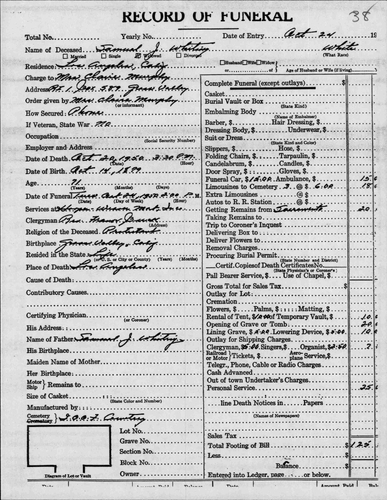 RECORD OF FUNERAL
38
Total No. Yearly No. Date of Entry Oct 24 19
Name of Deceased Samuel J. White
Married Single Widowed Divorced (What Race)
Residence Los Angeles, Calif Husband Wife Widow of
Charge to Mrs Claire Murphy Age of Husband or Wife (if living)
Address Rt. 1 Box 589 Grass Valley
Order given by Mrs. Claire Murphy
(or informant)
How Secured Phone
If Veteran, State War no
Occupation
(Social Security Number)
Employer and Address
Date of Death Oct. 20, 1950 2:20 P.M.
(Date) (Hour)
Date of Birth Oct. 14, 1879
Age 71
(Years) (Months) (Days)
Date of Funeral Tues. Oct 24, 1950 2:00 P.M.
(Date) (Day of Week) (Hour)
Services at
Clergyman Rev.
Religion of the Deceased Protestant
Birthplace Grass Valley, Calif
Resided in the State Life
(U.S. or City or County) (Years)
Place of Death Los Angeles
Cause of Death
Contributory Causes
Certifying Physician
(or Coroner)
His Address
Name of Father Samuel J.
His Birthplace
Maiden Name of Mother
Her Birthplace
Motor Ship Remains to
Size of Casket
(State Color and Number)
Manufactured by
Cemetery Crematory I.O.O.F. Cemetery
Lot No.
Grave No.
Section No.
Block No.
Owner
Diagram of Lot or Vault
Complete Funeral (except outlays) $
Casket
Burial Vault or Box
(State Kind)
Embalming Body
(Name of Embalmer)
Barber, $ Hair Dressing, $
Dressing Body, $ Underwear, $
Suit or Dress
(State Kind and Color)
Slippers, $ Hose, $
Folding Chairs, $ Tarpaulin, $
Candelabrum, $ Candles, $
Door Spray, $ Gloves, $
Funeral Car, $15.00 Ambulance, $ 15
Limousines to Cemetery 2 @ $ 6.00 15
Extra Limousines @ $
Autos to R. R. Station @ $
Getting Remains from Sacramento 20
Taking Remains to
Trip to Coroner's Inquest
Delivering Box to
Deliver Flowers to
Removal Charges
Procuring Burial Permit
(State Number and District)
Certif. Copies of Death Certificates No.
(State Physician's or Coroner's)
Pall Bearer Service, $ Use of Chapel, $
Gross Total for Sales Tax $
Outlay for Lot
Cremation
Flowers, $ Palms, $ Matting, $
Rental of Tent, $10.00 Temporary Vault, $ 10
Opening of Grave or Tomb 20
Lining Grave, $5.00 Lowering Device, $5.00 10
Outlay for Shipping Charges
Clergyman, $5.00 Singers, $ Organist, $2.50 7
Railroad or Motor Tickets, $ Aeroplane Service, $
Telegr., Phone, Cable or Radio Charges
Cash Advanced
Out of town Undertaker's Charges
Personal Service 25
line Death Notices in Papers
(Names of Newspapers)
Sales Tax
Total Footing of Bill $ 125
Less $
Balance $
Entered into Ledger, page or below.
Date Amount Paid Bal.